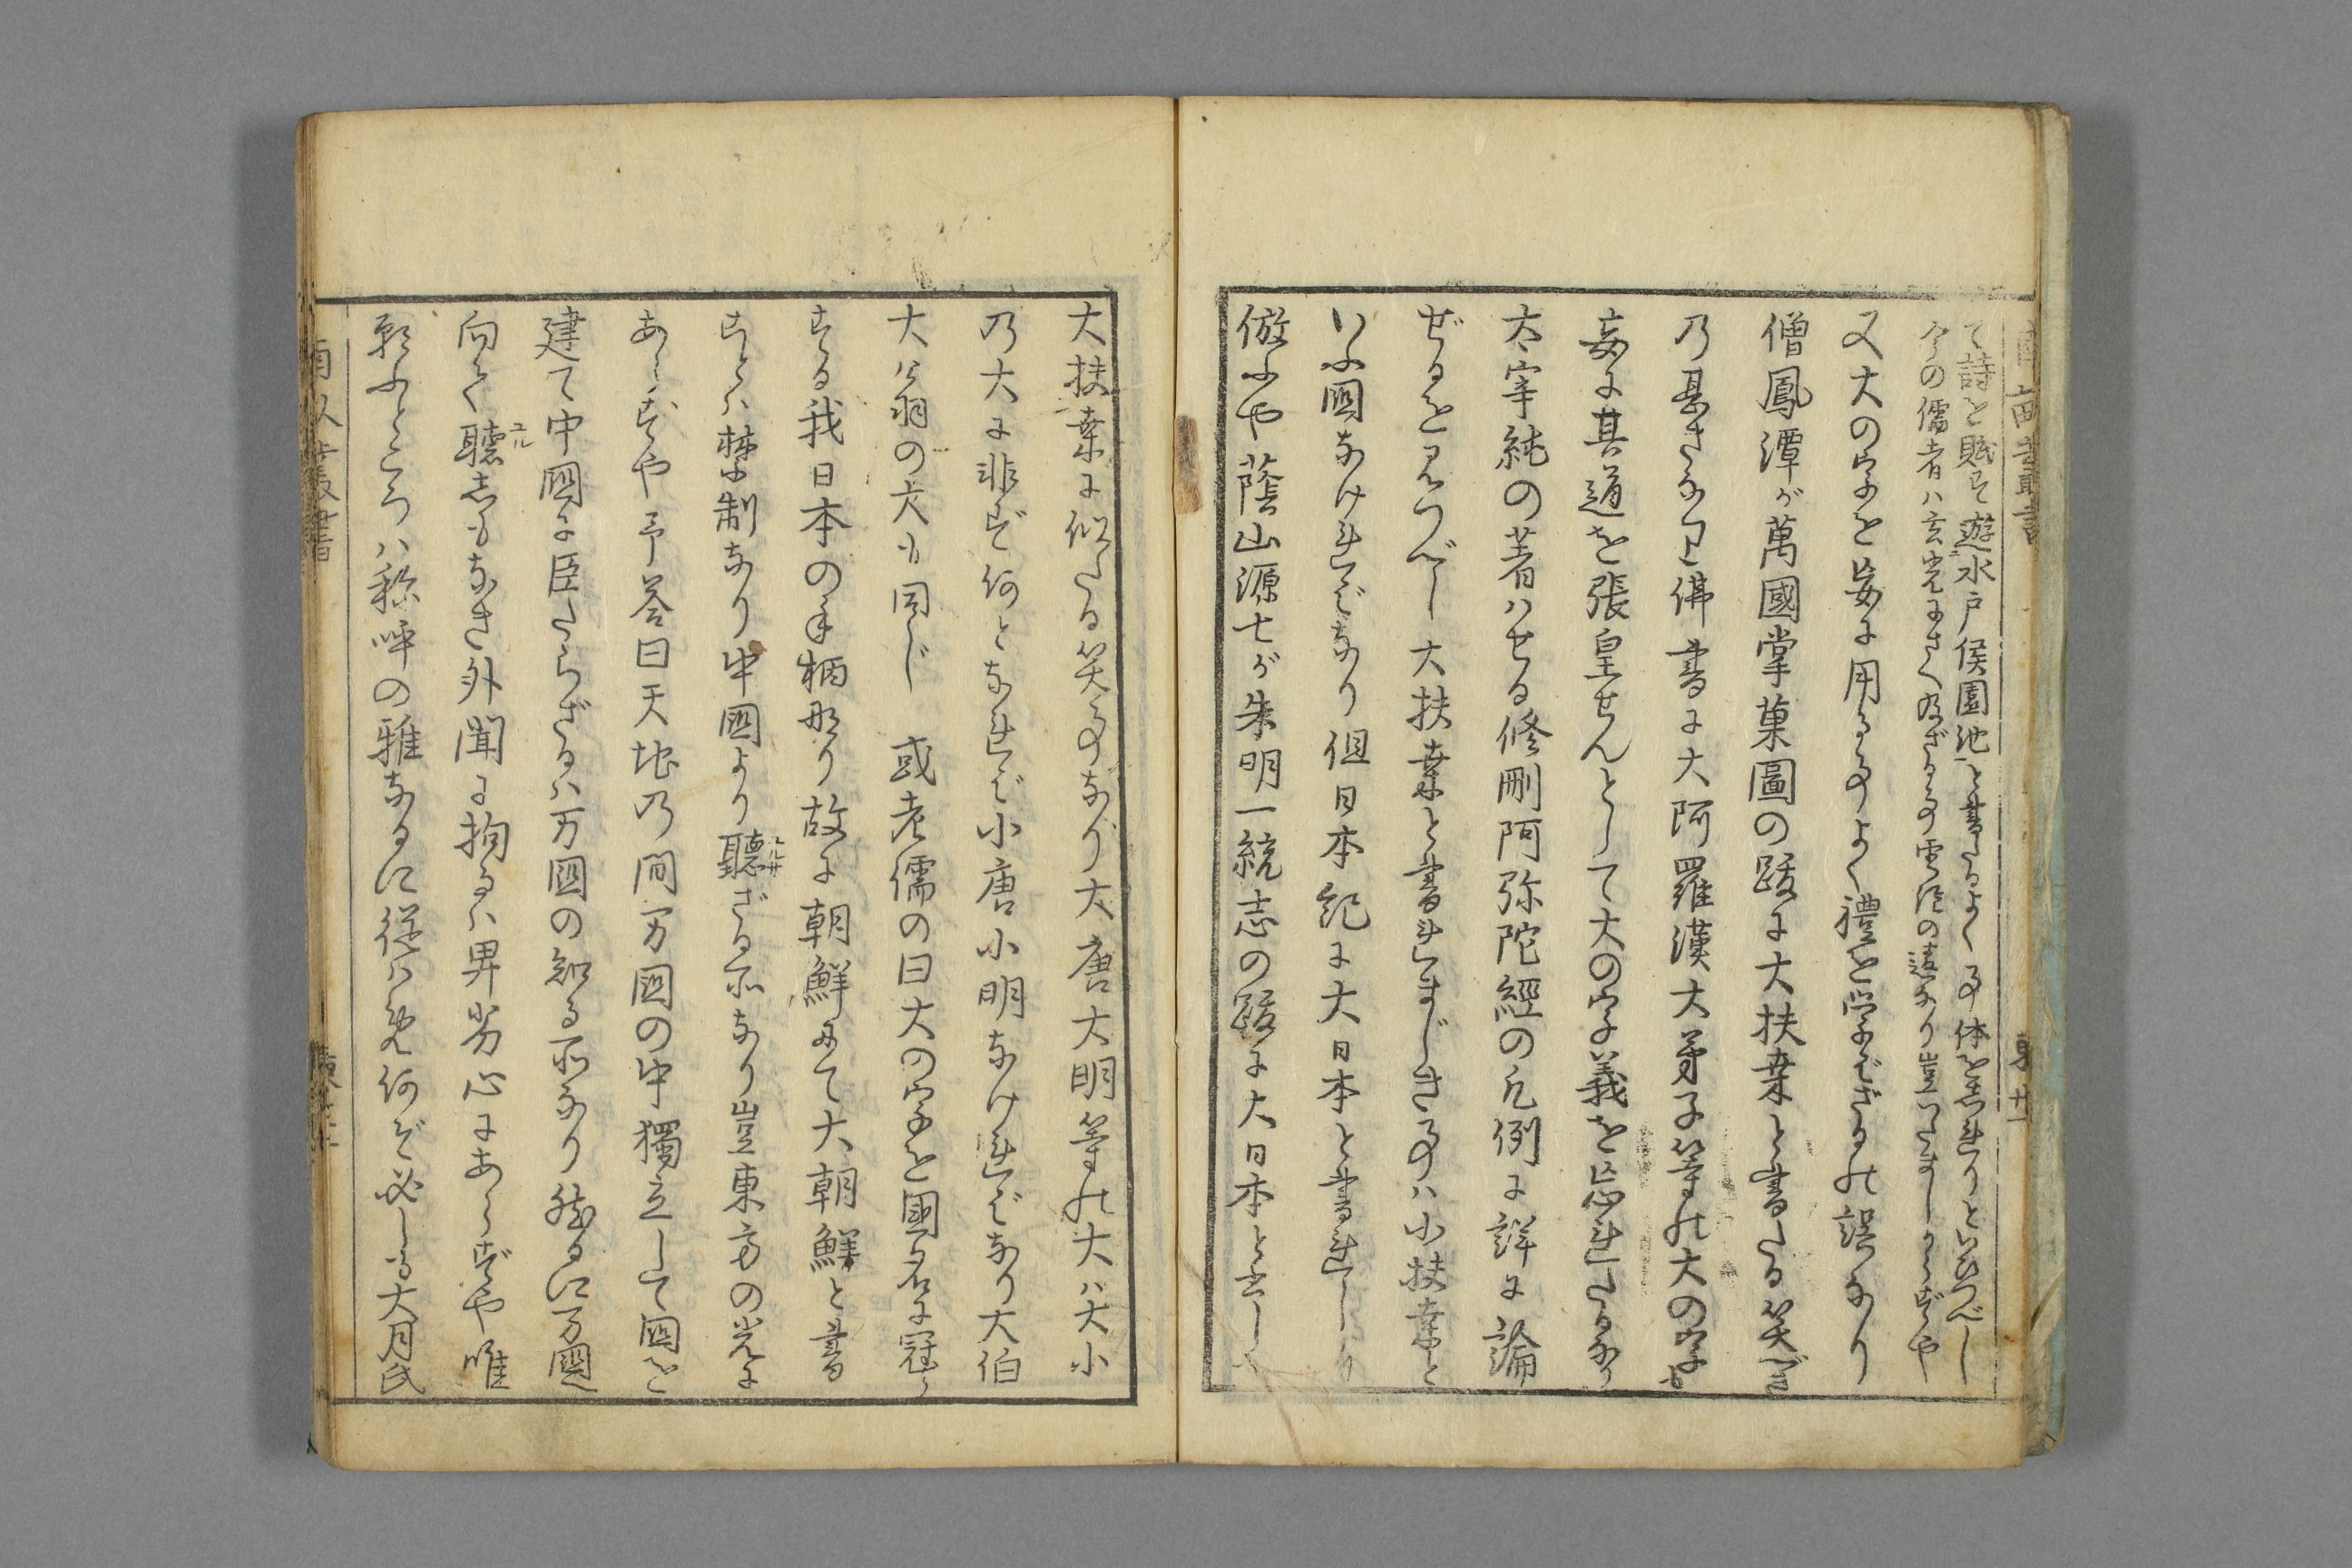 て詩を賦そ遊水戸侯園池と書たるよく事体を志れりといひつべし
今の儒者ハ玄寛まさく及ざる事雲泥の違なり豈いたましからずや
又大の字を妄に用る事よく禮を学ばざるの誤なり
僧鳳潭が萬國掌菓圖の跋に大扶桒と書たる笑べき
の甚きなり佛書に大阿羅漢大弟子等の大の字也
妄に其道を張皇せんとして大の字義を忘れたるなり
太宰純の著ハせる修刪阿弥陀經の凡例に詳に論
ぜるを見つべし大扶桒と書れまじき事ハ小扶桒と
いふ國なければなり但日本紀に大日本と書れしに
倣ふや蔭山源七が朱明一統志の跋に大日本と云しハ
大扶桒に似たる笑事なり大唐大明等の大ハ大小
の大に非ず何となれば小唐小明なければなり大伯
大翁の大も同じ 或老儒の曰大の字を國名に冠ら
する我日本の手柄なり故に朝鮮にて大朝鮮と書
ことハ禁制なり中國より聽ざる所なり豈東方の光に
ユルサ
あらずや予答曰天地の間万国の中獨立して国を
建て中國に臣たらざるハ万国の知る所なり然るに万國
向て聽しもなき外聞に拘るハ卑劣心にあらずや唯
ユル
願ふところハ称呼の雅なるに從ハ免何ぞ必しも大月氏
東廿一